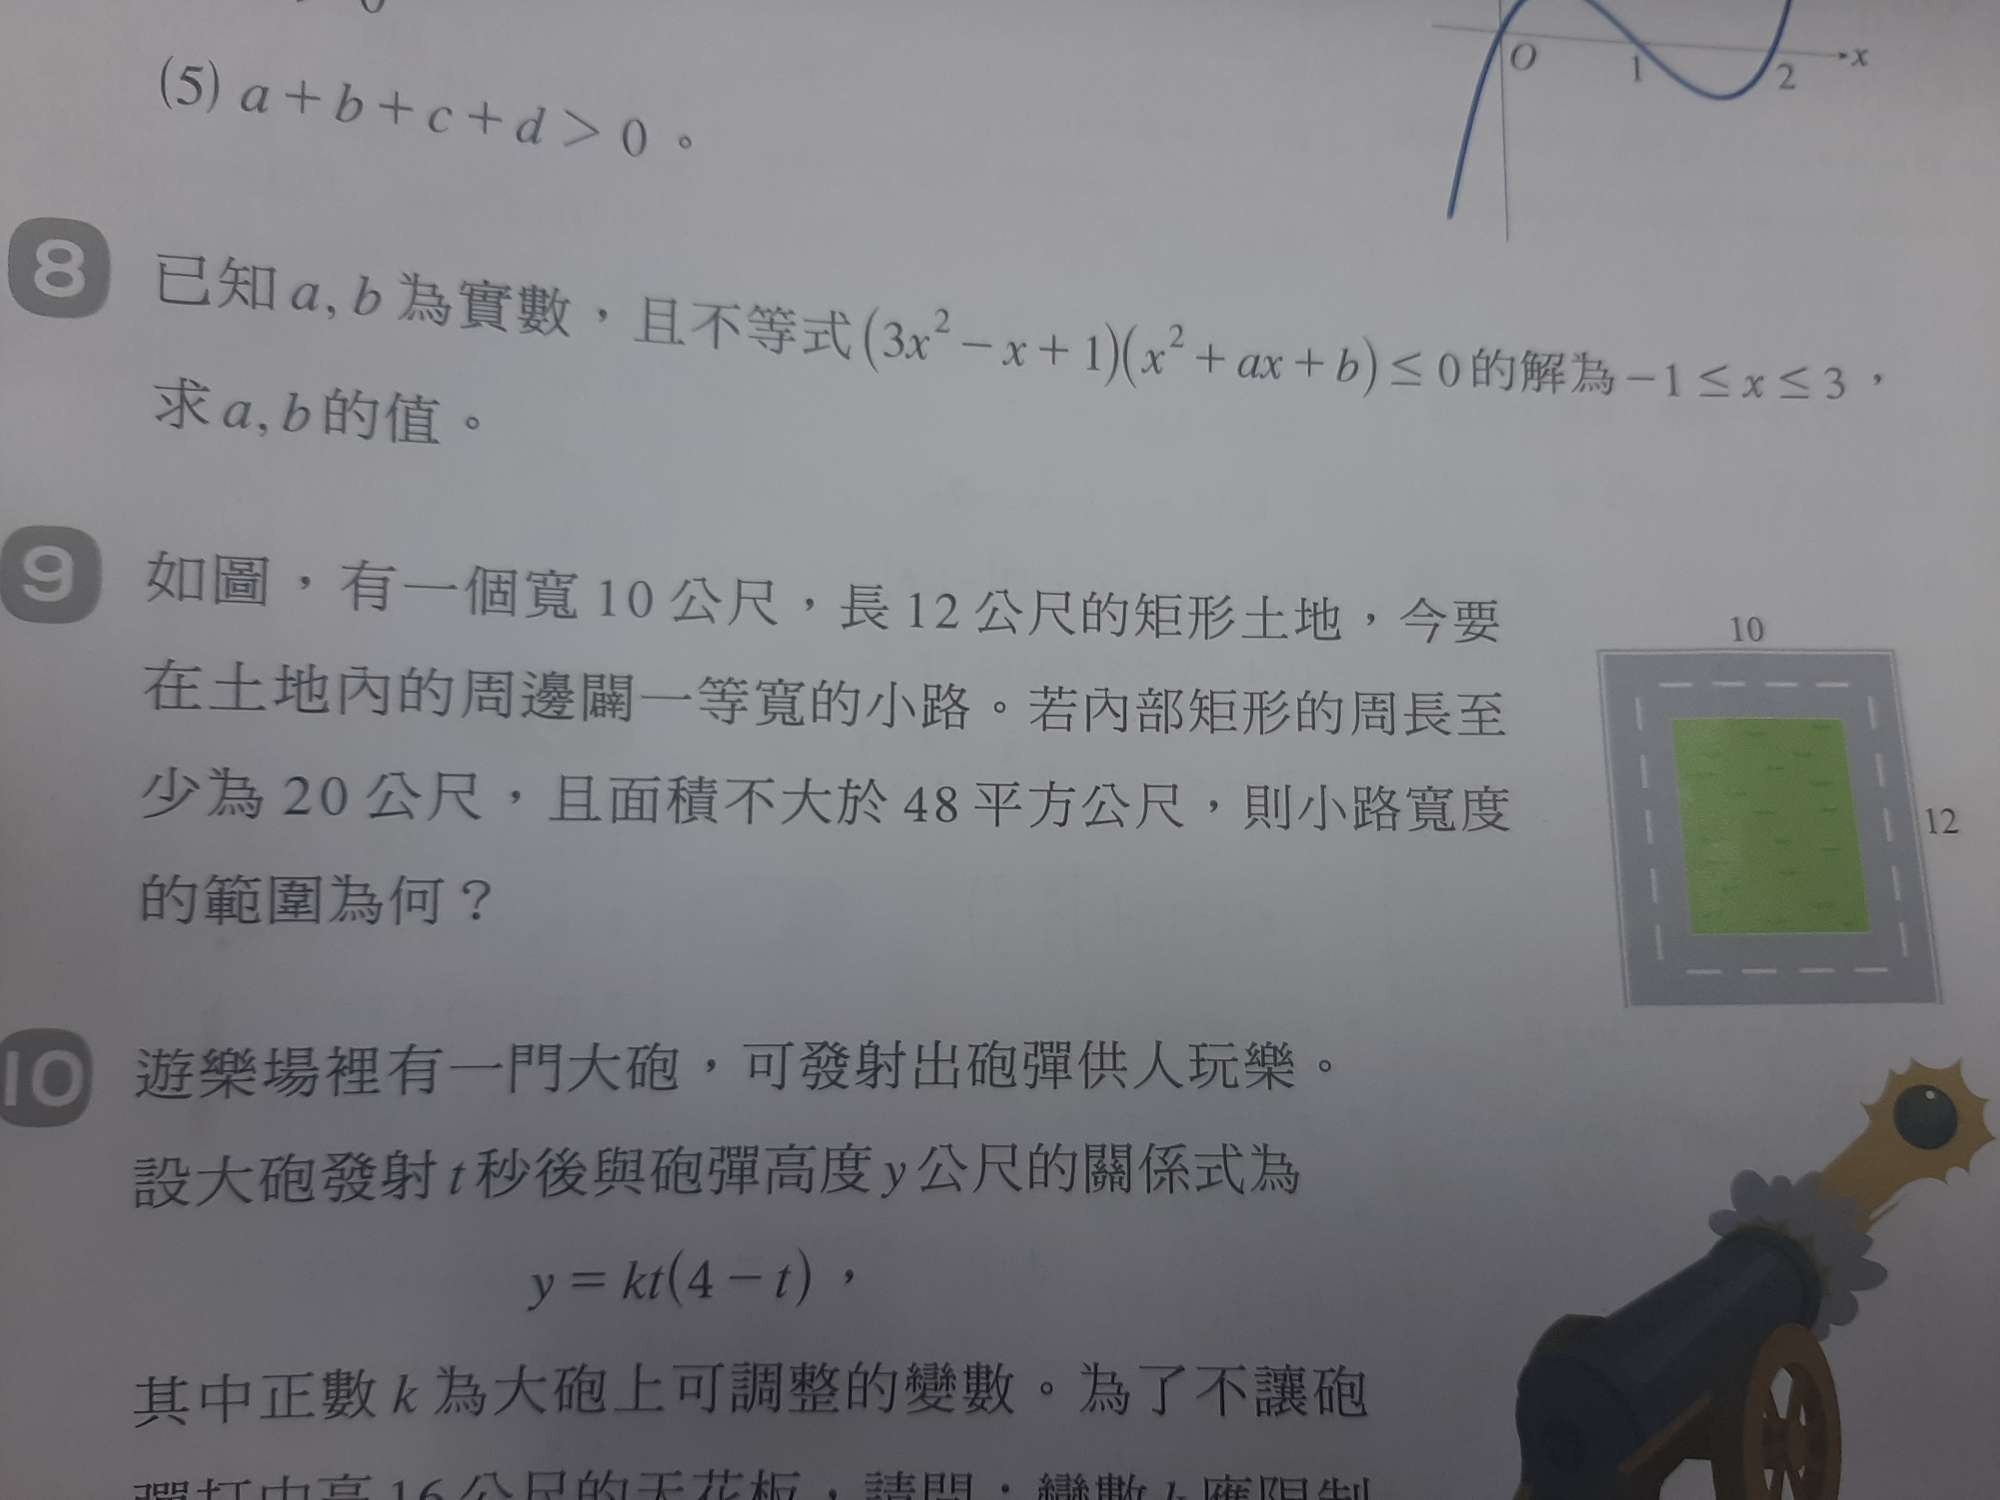 (5) a + b + c + d > 0 。
O 1 2 x
8 已知 a, b 為實數，且不等式 (3x² − x + 1)(x² + ax + b) ≤ 0 的解為 −1 ≤ x ≤ 3，
求 a, b 的值。
9 如圖，有一個寬 10 公尺，長 12 公尺的矩形土地，今要
在土地內的周邊闢一等寬的小路。若內部矩形的周長至
少為 20 公尺，且面積不大於 48 平方公尺，則小路寬度
的範圍為何？
10
12
10 遊樂場裡有一門大砲，可發射出砲彈供人玩樂。
設大砲發射 t 秒後與砲彈高度 y 公尺的關係式為
y = kt(4 − t)，
其中正數 k 為大砲上可調整的變數。為了不讓砲
彈打中高 16 公尺的天花板，請問：變數 k 應限制